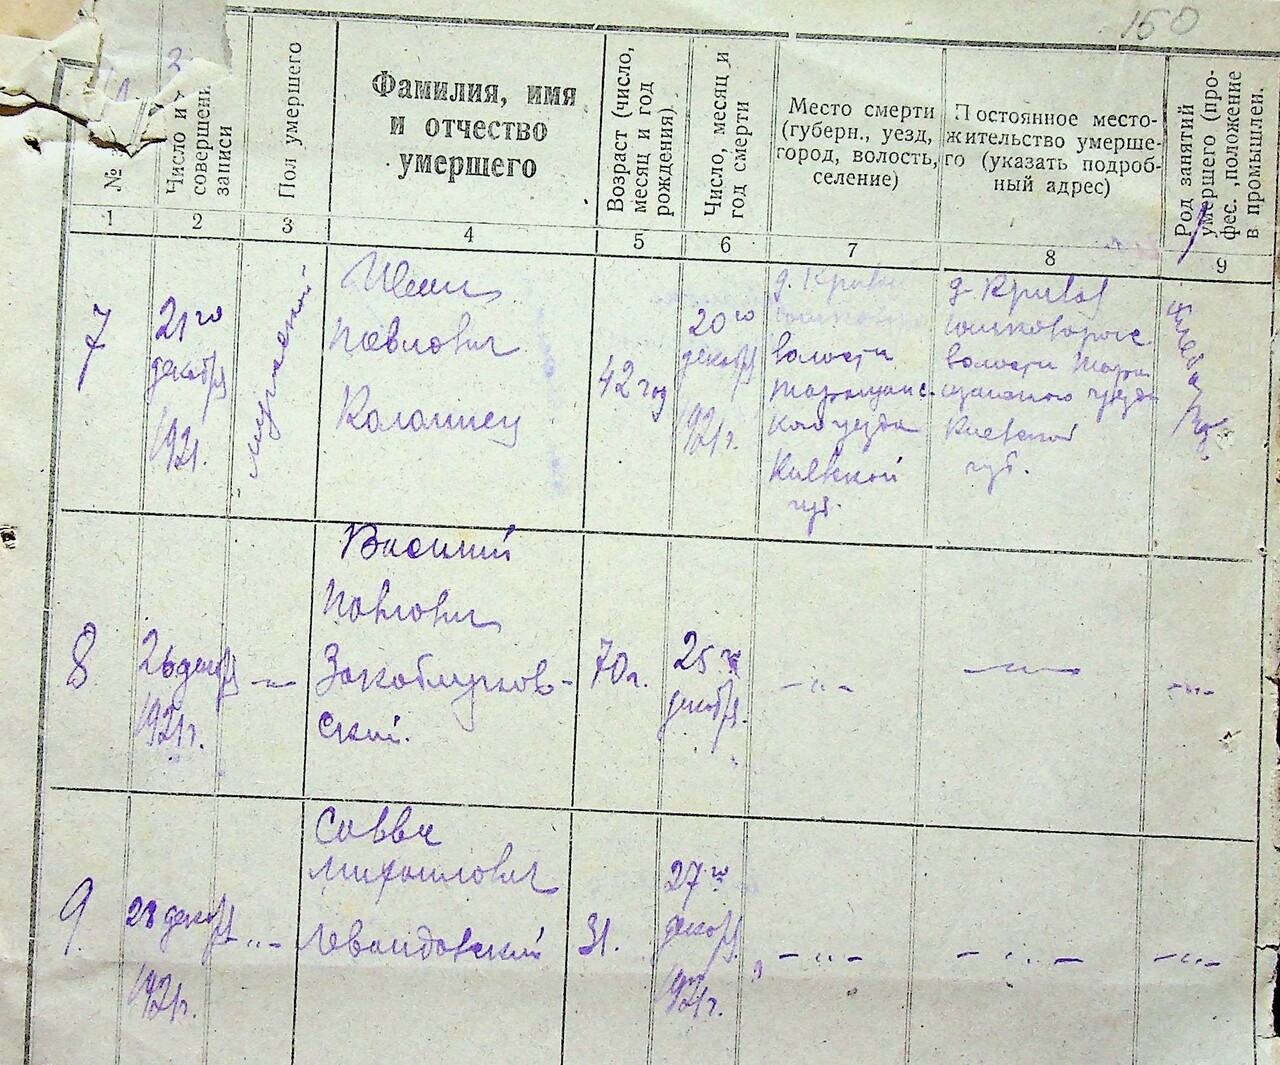 150
№
Число и
совершени
записи
Пол умершего
Фамилия, имя
и отчество
умершего
Возраст (число,
месяц и год
рождения)
Число, месяц и
год смерти
Место смерти
(губерн., уезд,
город, волость,
селение)
Постоянное место-
жительство умерше-
го (указать подроб-
ный адрес)
Род занятий
умершего (про-
фес. ,положение
в промышлен.
1
2
3
4
5
6
7
8
9
7
21го
декабр
1921.
мужской
Павлович
Коломиец
42 год
20го
декабр
1921г.
д. Кривой
волости
кого уезда
Киевской
губ.
д. Кривой
волости Тара
щанского уезда
Киевской
губ.
Хлебороб
8
26 декабр
1921г.
Василий
Павлович
Закаблуков-
ский.
70 л.
25го
декабр.
— " —
— " —
— " —
9
28 декабр
1921г.
— " —
Савва
Михайлович
Левандовский
31.
27го
декабр
1921г.
— " —
— " —
— " —